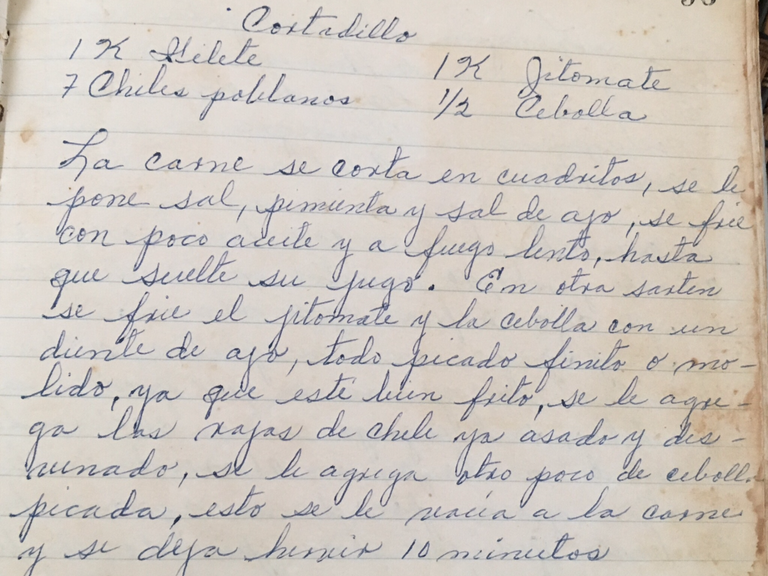 Cortadillo
1 K Filete
1 K Jitomate
7 Chiles poblanos
1/2 Cebolla
La carne se corta en cuadritos, se le
pone sal, pimienta y sal de ajo, se frie
con poco aceite y a fuego lento, hasta
que suelte su jugo. En otra sarten
se frie el jitomate y la cebolla con un
diente de ajo, todo picado finito o mo-
lido, ya que esté bien frito, se le agre-
ga las rajas de chile ya asado y des-
venado, se le agrega otro poco de cebolla
picada, esto se le vacia a la carne
y se deja hervir 10 minutos